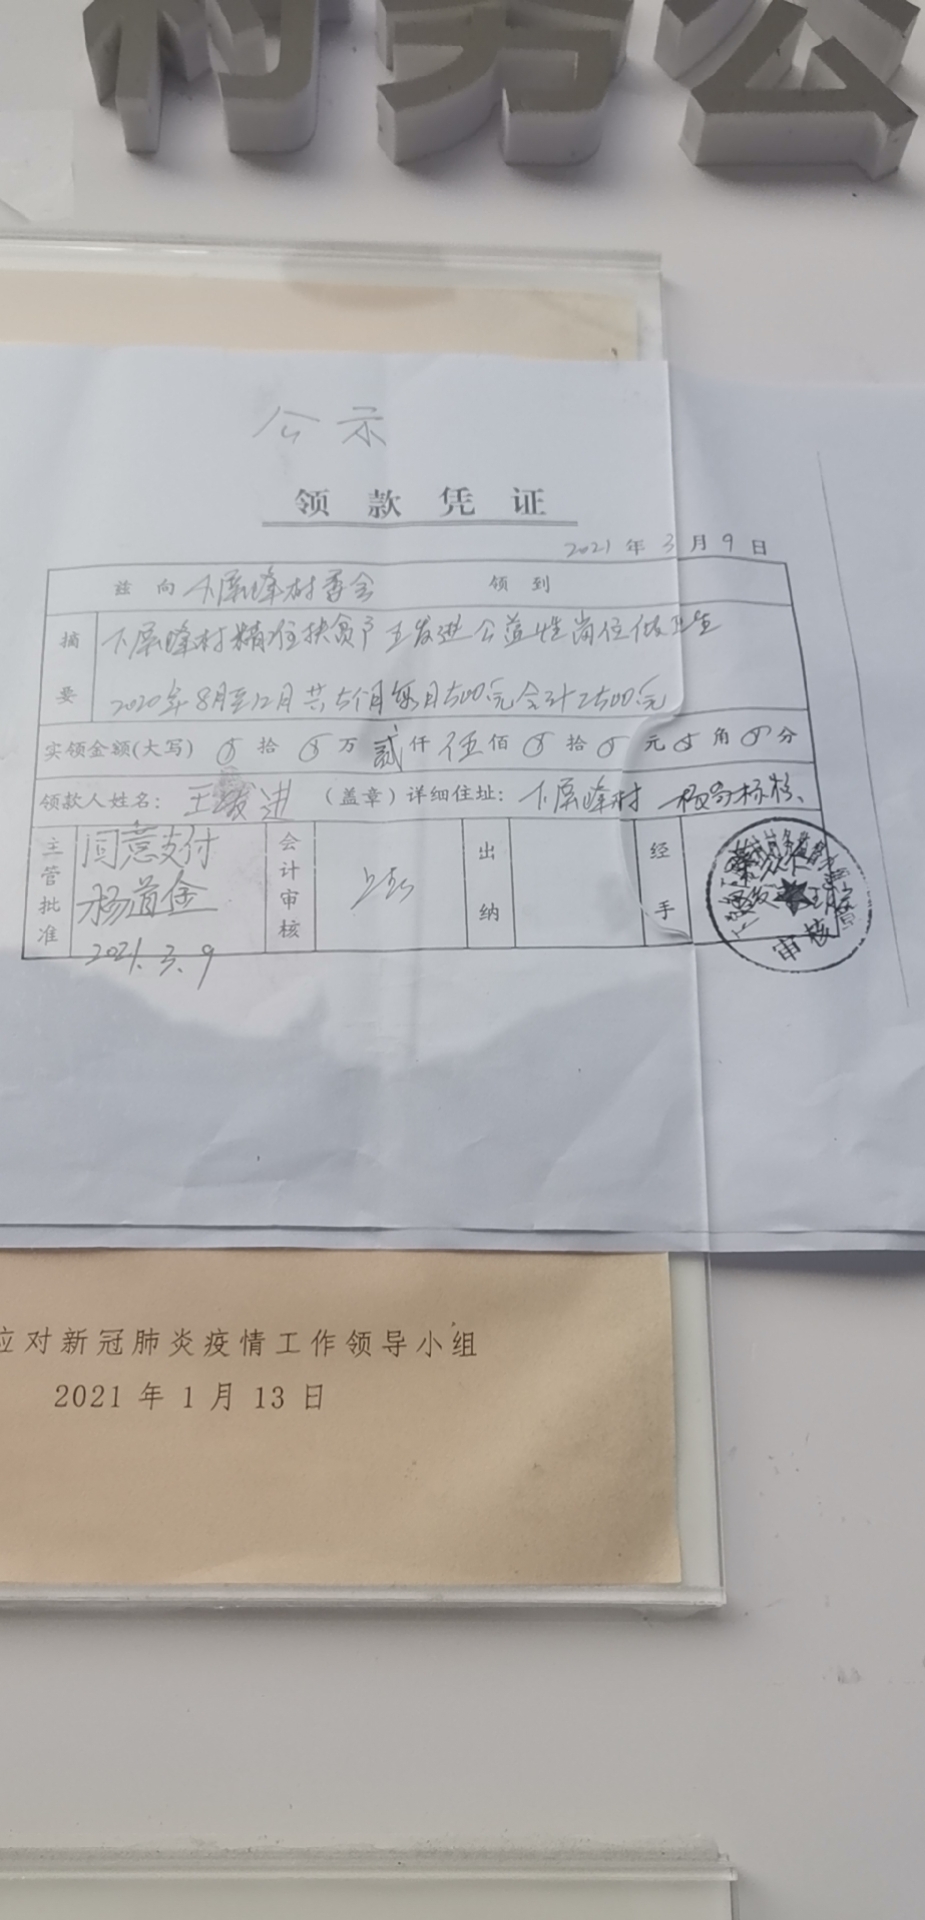 村务公
公示
领款凭证
2021年3月9日
兹向下屏峰村委会 领到
摘要
下屏峰村精准扶贫户王发进公益性岗位做卫生
2020年8月至12月共5个月每月500元合计2500元
实领金额(大写) 拾 万贰仟伍佰 拾 元 角 分
领款人姓名:王发进 (盖章)详细住址:下屏峰村
主管批准 同意支付 会计审核 出纳 经手
杨道金
2021.3.9
审核
应对新冠肺炎疫情工作领导小组
2021年1月13日